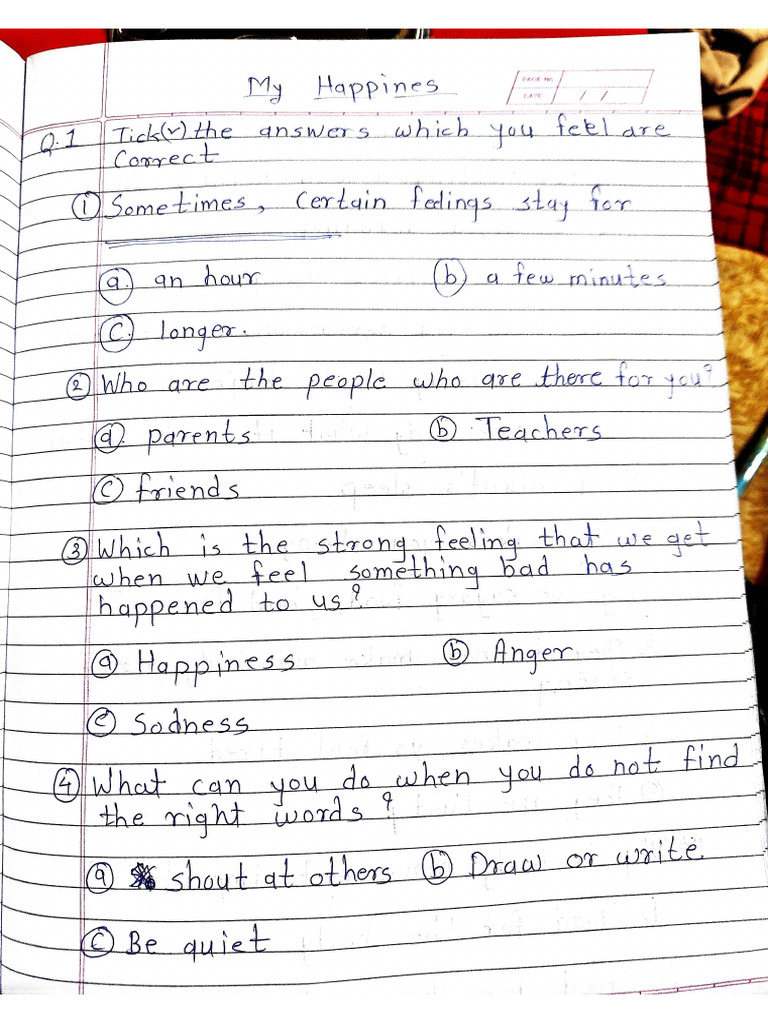 My Happines
PAGE NO.
DATE / /
Q.1 Tick(✓) the answers which you feel are
Correct
① Sometimes, Certain feelings stay for
ⓐ. an hour ⓑ a few minutes
ⓒ. longer.
② Who are the people who are there for you?
ⓐ. parents ⓑ Teachers
ⓒ friends
③ Which is the strong feeling that we get
when we feel something bad has
happened to us?
ⓐ Happiness ⓑ Anger
ⓒ Sodness
④ What can you do when you do not find
the right words?
ⓐ shout at others ⓑ Draw or write
ⓒ Be quiet